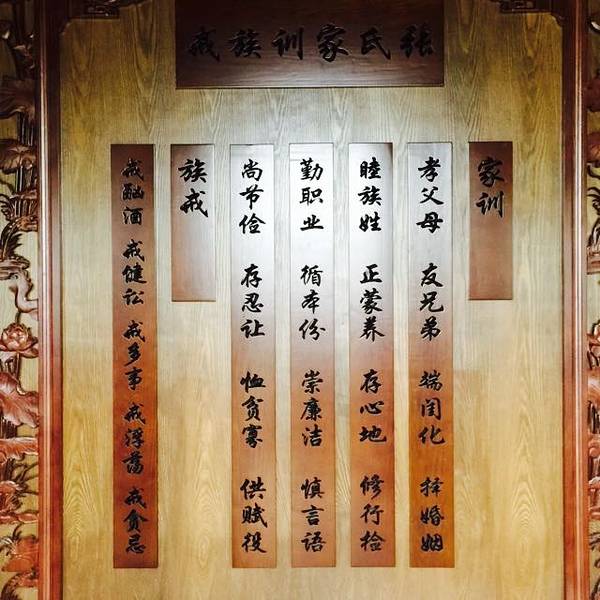 张氏家训族戒
家训
孝父母 友兄弟 端闺化 择婚姻
睦族姓 正蒙养 存心地 修行捡
勤职业 循本份 崇廉洁 慎言语
尚节俭 存忍让 恤贫寡 供赋役
族戒
戒酗酒 戒健讼 戒多事 戒浮荡 戒贪忌